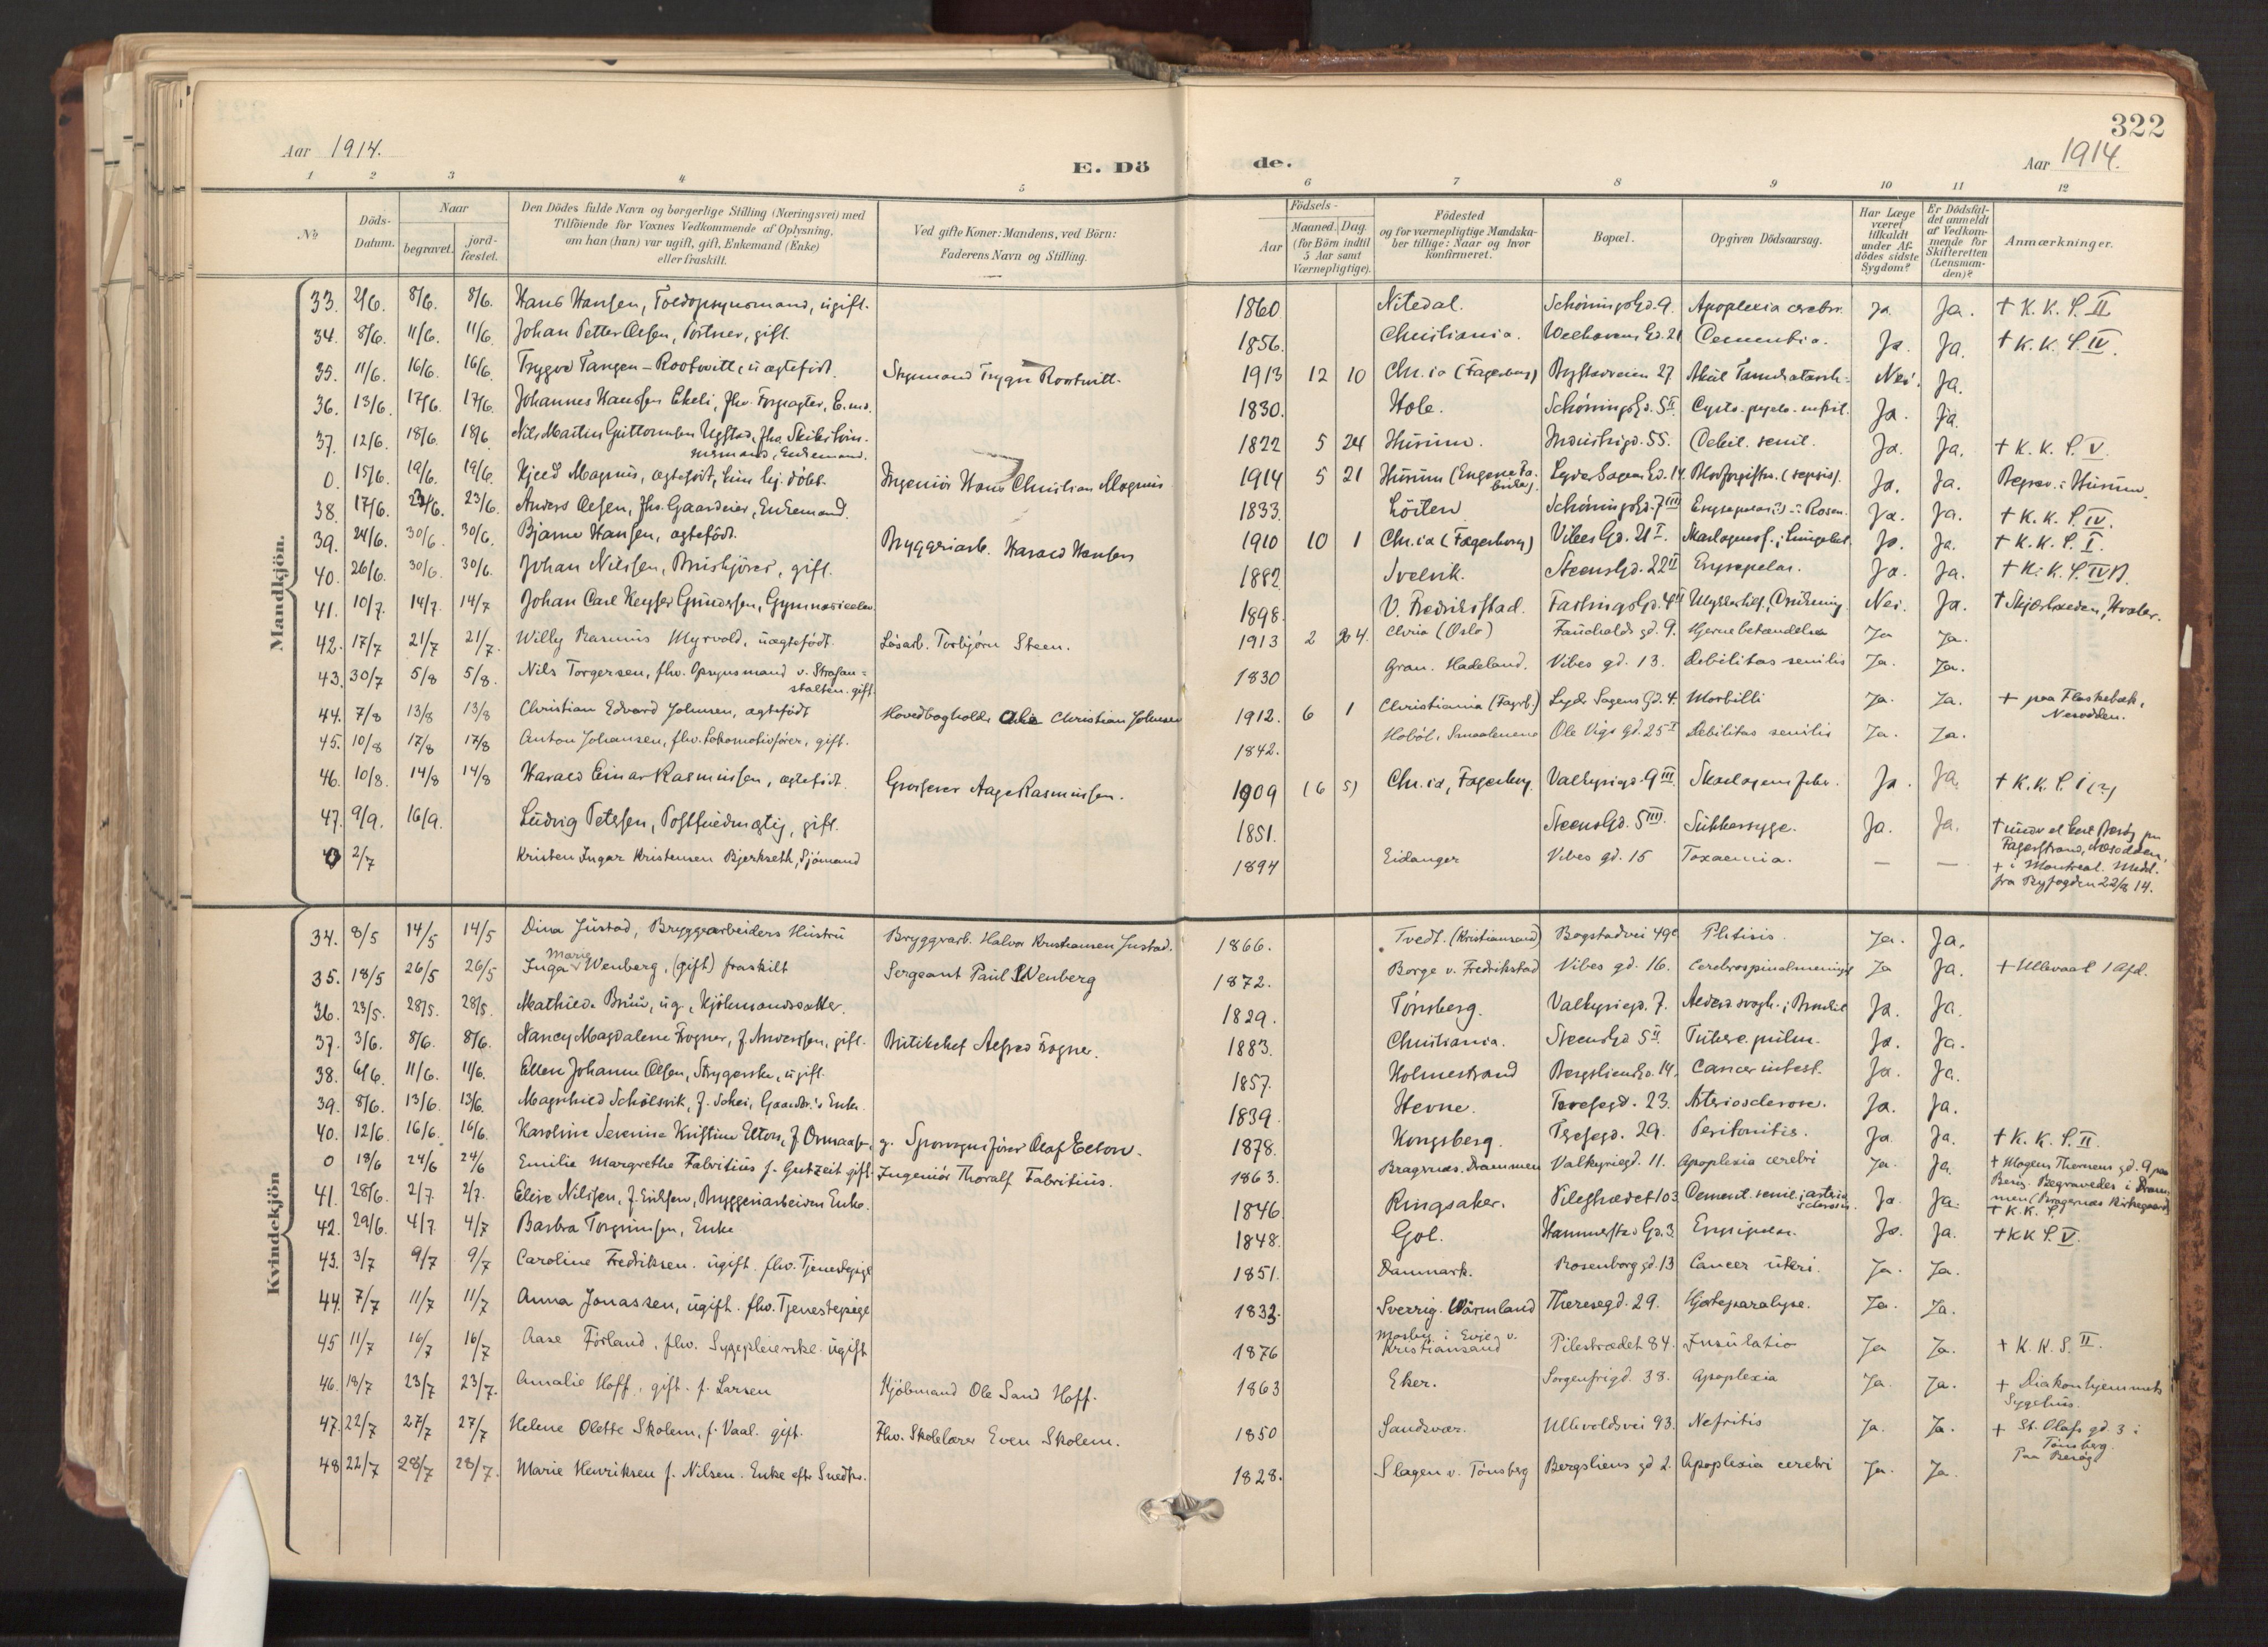 322
Aar 1914.
E. Dö de.
Aar 1914.
1 2 3 4 5 6 7 8 9 10 11 12
No
Döds-Datum.
Naar
begravet.
jord-fæstet.
Den Dödes fulde Navn og borgerlige Stilling (Næringsvei) med
Tilföiende for Voxnes Vedkommende af Oplysning,
om han (hun) var ugift, gift, Enkemand (Enke)
eller fraskilt.
Ved gifte Koner: Mandens, ved Börn:
Faderens Navn og Stilling.
Födsels-
Aar
Maaned. Dag.
(for Börn indtil
5 Aar samt
Værnepligtige).
Födested
og for værnepligtige Mandska-
ber tillige: Naar og hvor
konfirmeret.
Bopæl.
Opgiven Dödsaarsag.
Har Læge
været
tilkaldt
under Af-
dödes sidste
Sygdom?
Er Dödsfal-
det anmeldt
af Vedkom-
mende for
Skifteretten
(Lensman-
den)?
Anmærkninger.
Mandkjön.
33. 2/6. 8/6. 8/6. Hans Hansen, Toldopsynsmand, ugift. 1860 Nitedal. Schöningsgd. 9. Apoplexia cerebri. Ja. Ja. + K. K. S. II
34. 8/6. 11/6. 11/6. Johan Petter Olsen, Portner, gift. 1856. Christiania. Welhavens Gd. 21 Dementia. Ja. Ja. + K. K. S. IV.
35. 11/6. 16/6. 16/6. Trygve Tangen-Rootwitt, uægtefödt. Styrmand Trygve Rootwitt. 1913 12 10 Chr.ia (Fagerborg) Bogstadveien 27 Akut Nei. Ja.
36. 13/6. 17/6. 17/6. Johannes Hansen Ekeli, fhv. Forpagter, E.md. 1830. Hole. Schöningsgd. 5 II Cysto-pyelo-nefrit. Ja. Ja.
37. 12/6. 18/6. 18/6 Nils Martin Guttormsen Ugstad, fhv. Skibstöm-
mermand, Enkemand. 1822 5 24 Hurum. Industrigd. 55. Debil. senil. Ja. Ja. + K. K. S. V.
0. 15/6. 19/6. 19/6. Kjell Magnus, ægtefödt, kun hj. döbt. Ingeniör Hans Christian Magnus 1914 5 21 Hurum (Engene Fa-
briker). Lyder Sagens Gd. 14 Blodforgiftn. (sepsis). Ja. Ja. Begrav. i Hurum.
38. 17/6. 23/6. 23/6. Anders Olsen, fhv. Gaardeier, Enkemand. 1833. Löiten Schöningsgd. 7 III Erysepelas (?) Rosen. Ja. Ja. + K. K. S. IV.
39. 24/6. 30/6. 30/6. Bjarne Hansen, ægtefödt. Bryggeriarb. Harald Hansen 1910 10 1 Chr.ia (Fagerborg) Vibes Gd. 21 I. Skarlagensf.; Lungebet. Ja. Ja. + K. K. S. I.
40. 26/6. 30/6. 30/6. Johan Nilsen, Bruskjörer, gift. 1882. Svelvik. Steensgd. 22 II Erysepelas. Ja. Ja. + K. K. S. IV B.
41. 10/7. 14/7. 14/7 Johan Carl Keyser Gundersen, Gymnasieelev. 1898. V. Fredrikstad. Fastingsgd. 4 II Ulykkestilf., Drukning. Nei. Ja. + Skjærhalden, Hvaler.
42. 17/7 21/7 21/7. Willy Rasmus Myrvold, uægtefödt. Lösarb. Torbjörn Steen. 1913 2 24. Chria (Oslo) Fauchalds gd. 9. Hjernebetændelse Ja Ja.
43. 30/7 5/8 5/8. Nils Torgersen, fhv. Opsynsmand v. Strafan-
stalten. gift 1830 Gran. Hadeland. Vibes gd. 13. Debilitas senilis Ja. Ja.
44. 7/8 13/8 13/8 Christian Edvard Johnsen, ægtefödt Hovedbogholder Ole Christian Johnsen 1912. 6 1 Christiania (Fagrb.) Lyder Sagens Gd. 4. Morbilli Ja. Ja. + paa Flaskebæk,
Nesodden.
45. 10/8 17/8 17/8 Anton Johansen, fhv. Lokomotivförer, gift. 1842. Hoböl, Smaalenene Ole Vigs gd. 25 I Debilitas senilis Ja. Ja.
46. 10/8 14/8 14/8 Harald Einar Rasmussen, ægtefödt. Grosserer Aage Rasmussen. 1909 (6 5) Chr.ia, Fagerborg. Valkyriegd. 9 III Skarlagensfeber. Ja. Ja. + K. K. S. I (?)
47. 9/9. 16/9. Ludvig Petersen, Postfuldmægtig, gift. 1851. Steensgd. 5 III. Sukkersyge. Ja. Ja. + under et kort Besög paa
Fagerstrand, Næsodden.
0 2/7 Kristen Ingar Kristensen Bjerkseth, Sjömand 1894 Eidanger Vibes gd. 15 Toxaemia. — — + i Montreal. Medd.
fra Byfogden 22/8 14.
Kvindekjön
34. 8/5 14/5 14/5 Dina Justad, Bryggearbeiders Hustru Bryggearb. Halvor Kristiansen Justad. 1866. Tvedt. (Kristiansand) Bogstadvei 49c Phtisis. Ja. Ja.
35. 18/5 26/5 26/5 Inga Marie Wenberg, (gift) fraskilt Sergeant Paul Wenberg 1872. Borge v. Fredrikstad Vibes gd. 16. Cerebrospinalmeningit Ja Ja. + Ullevaal 1 Afd.
36. 23/5. 28/5. 28/5. Mathilde Bruu, ug., Kjöbmandsdatter. 1829. Tönsberg. Valkyriegd. 7. Alderd.svagh.; Bronkit Ja. Ja.
37. 3/6. 8/6. 8/6. Nancy Magdalene Fogner, f. Andersen, gift. Butikchef Alfred Fogner. 1883. Christiania. Steensgd 5 II. Tuberc. pulm. Ja. Ja.
38. 6/6. 11/6. 11/6. Ellen Johanne Olsen, Strygerske, ugift. 1857. Holmestrand Bergsliensgd. 14, Cancer intest. Ja. Ja.
39. 8/6. 13/6. 13/6. Magnhild Schölsvik, f. Schei, Gaardbr.'s Enke. 1839. Hevne. Teresegd. 23. Arteriosclerose. Ja. Ja.
40. 12/6. 16/6. 16/6. Karoline Severine Kristine Elton, f. g. Sporvognsförer Olaf Elton. 1878. Kongsberg. Teresegd. 29. Peritonitis. Ja Ja. + K. K. S. II.
0 18/6 24/6 24/6 Emilie Margrethe Fabritius f. Gutzeit gift. Ingeniör Thoralf Fabritius. 1863. Bragernæs. Drammen Valkyriegd. 11. Apoplexia cerebri Ja. Ja. + Mogens Thorsens gd. 9 paa
Besög. Begravedes i Dram-
men (Bragernæs Kirkegaard)
41. 28/6. 2/7. 2/7. Elise Nilsen, f. Eriksen, Bryggeriarbeiders Enke. 1846. Ringsaker. Pilestrædet 103 Dement. senil.; arterio-
sclerosis. Ja. Ja. + K. K. S.
42. 29/6. 4/7 4/7 Barbra Torgrimsen, Enke 1848. Gol. Hammerstads Gd. 3. Erysipelas. Ja. Ja. + K K S. V.
43. 3/7 9/7 9/7 Caroline Fredriksen. ugift. fhv. Tjenestepige 1851. Danmark. Rosenborg gd. 13 Cancer uteri. Ja. Ja.
44. 7/7 11/7 11/7 Anna Jonassen, ugift. fhv. Tjenestepige 1832. Sverrig. Wärmland Theresegd. 29. Hjerteparalyse. Ja. Ja.
45 11/7 16/7 16/7 Aase Förland, fhv. Sygepleierske. ugift 1876 Mosby i Evje v.
Kristiansand Pilestrædet 84. Insulatio Ja Ja. + K. K. S. II.
46. 18/7 23/7 23/7. Amalie Hoff, gift. f. Larsen Kjöbmand Ole Sand Hoff. 1863 Eker. Sorgenfrigd. 38. Apoplexia Ja. Ja. + Diakonhjemmets
Sygehus.
47. 22/7 27/7 27/7 Helene Olette Skolem, f. Vaal. gift. Fhv. Skolelærer Even Skolem. 1850 Sandsvær. Ullevoldsvei 93. Nefritis Ja. Ja. + St. Olafs gd. 3 i
Tönsberg.
Paa Besög
48 22/7 28/7 28/7. Marie Henriksen f. Nilsen. Enke eftr Snedkr. 1828. Slagen v. Tönsberg Bergsliens gd 2. Apoplexia cerebri Ja. Ja.